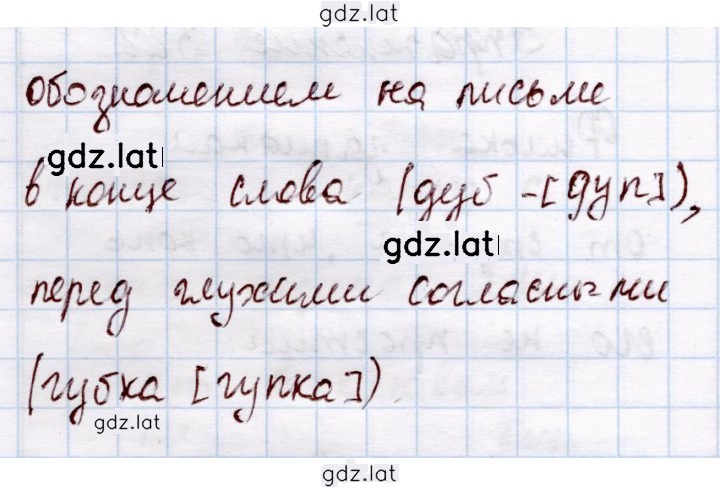 gdz.lat
обозначением на письме
gdz.lat
в конце слова (дуб -[дуп]),
gdz.lat
перед глухими согласными
(губка [гупка])
gdz.lat
gdz.lat